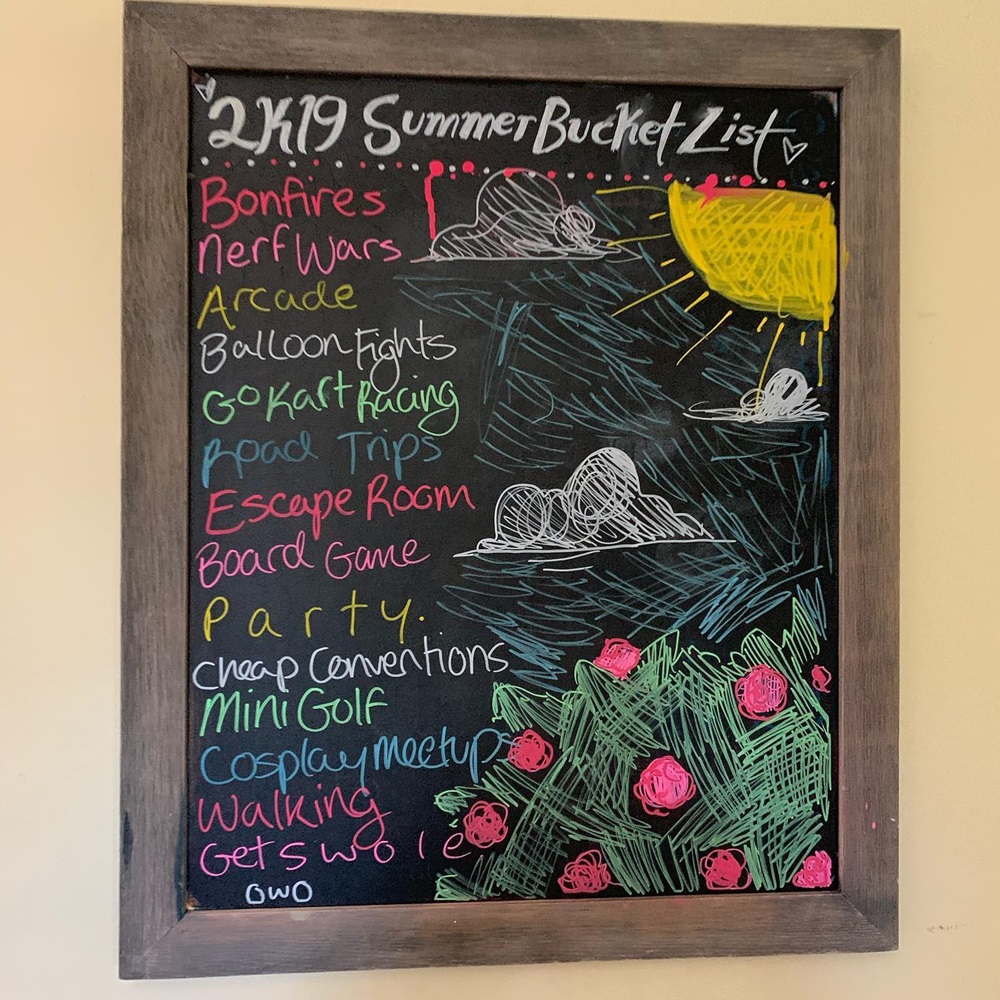 2K19 Summer Bucket List
Bonfires
Nerf Wars
Arcade
Balloon Fights
Go Kart Racing
Road Trips
Escape Room
Board Game
Party.
Cheap Conventions
Mini Golf
Cosplay Meetups
Walking
Get Swole
OwO